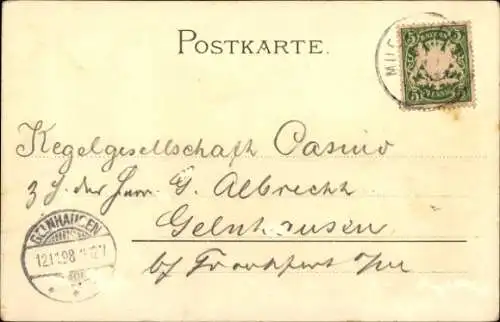 POSTKARTE.
5 BAYERN 5
5 PFENNIG 5
Kegelgesellschaft Casino
z H. der Herr. G. Albrecht
Gelnhausen
b/ Frankfurt a/m
GELNHAUSEN
12.11.98